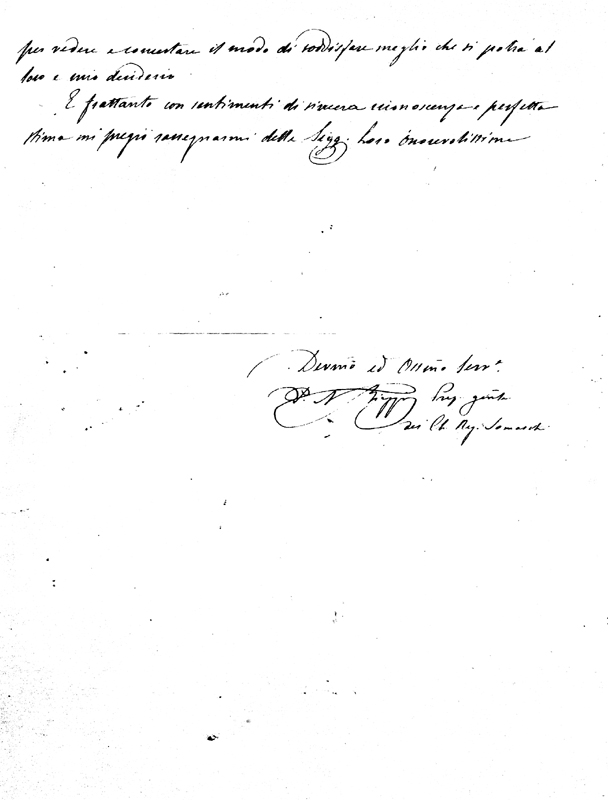 per vedere e concertare il modo di soddisfare meglio che si potrà al
loro e mio desiderio
E frattanto con sentimenti di sincera riconoscenza e perfetta
stima mi pregio rassegnarmi delle Sigg. Loro Onorevolissime
Devmo ed Ossmo Serv.e
D. N. Biaggi Prep. gnle
dei Ch. Reg. Somaschi